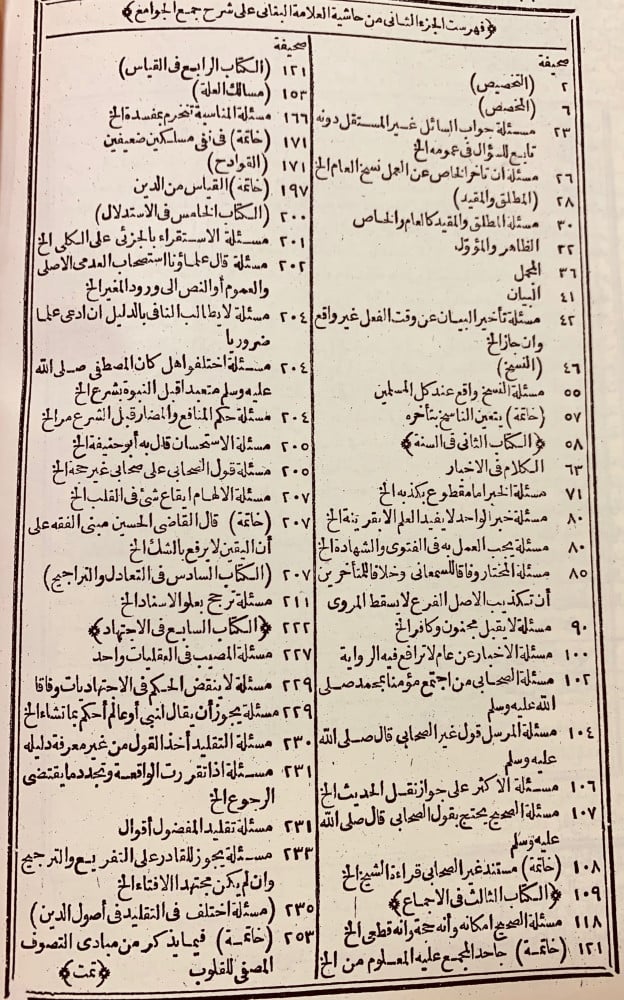 ﴿فهرست الجزء الثاني من حاشية العلامة البناني على شرح جمع الجوامع﴾
صحيفة
٢ (التخصيص)
٦ (المخصص)
٢٣ مسئلة جواب السائل غير المستقل دونه
تابع للسؤال في عمومه الخ
٢٦ مسئلة ان تأخر الخاص عن العمل نسخ العام الخ
٢٨ (المطلق والمقيد)
٣٠ مسئلة المطلق والمقيد كالعام والخاص
٣٢ الظاهر والمؤول
٣٦ المجمل
٤١ البيان
٤٢ مسئلة تأخير البيان عن وقت الفعل غير واقع
وان جاز الخ
٤٦ (النسخ)
٥٥ مسئلة النسخ واقع عند كل المسلمين
٥٧ (خاتمة) يتعين الناسخ بتأخره
٥٨ ﴿الكتاب الثاني في السنة﴾
٦٣ الكلام في الاخبار
٧١ مسئلة الخبر اما مقطوع بكذبه الخ
٨٠ مسئلة خبر الواحد لا يفيد العلم الا بقرينة الخ
٨٠ مسئلة يجب العمل به في الفتوى والشهادة الخ
٨٥ مسئلة المختار وفاقا للسمعاني وخلافا للمتأخرين
أن تكذيب الاصل الفرع لا يسقط المروى
٩٠ مسئلة لا يقبل مجنون وكافر الخ
١٠٠ مسئلة الاخبار عن عام لا ترافع فيه الرواية
١٠٢ مسئلة الصحابي من اجتمع مؤمنا بمحمد صلى
الله عليه وسلم
١٠٤ مسئلة المرسل قول غير الصحابي قال صلى الله
عليه وسلم
١٠٦ مسئلة الاكثر على جواز نقل الحديث الخ
١٠٧ مسئلة الصحيح يحتج بقول الصحابي قال صلى الله
عليه وسلم
١٠٨ (خاتمة) مستند غير الصحابي قراءة الشيخ الخ
١٠٩ ﴿الكتاب الثالث في الاجماع﴾
١١٨ مسئلة الصحيح امكانه وأنه حجة وانه قطعى الخ
١٢١ (خاتمة) جاحد المجمع عليه المعلوم من الخ
صحيفة
١٢١ (الكتاب الرابع في القياس)
١٥٣ (مسالك العلة)
١٦٦ مسئلة المناسبة تنخرم بمفسدة الخ
١٧١ (خاتمة) في نفى مسلكين ضعيفين
١٧١ (القوادح)
١٩٧ (خاتمة) القياس من الدين
٢٠٠ (الكتاب الخامس في الاستدلال)
٢٠١ مسئلة الاستقراء بالجزئى على الكلى الخ
٢٠٢ مسئلة قال علماؤنا استصحاب العدم الاصلى
والعموم أو النص الى ورود المغير الخ
٢٠٤ مسئلة لا يطالب النافي بالدليل ان ادعى علما
ضروريا
٢٠٤ مسئلة اختلفوا هل كان المصطفى صلى الله
عليه وسلم متعبدا قبل النبوة بشرع الخ
٢٠٤ مسئلة حكم المنافع والمضار قبل الشرع مر الخ
٢٠٥ مسئلة الاستحسان قال به أبو حنيفة الخ
٢٠٥ مسئلة قول الصحابي على صحابي غير حجة الخ
٢٠٧ مسئلة الالهام ايقاع شئ في القلب الخ
٢٠٧ (خاتمة) قال القاضى الحسين مبنى الفقه على
أن اليقين لا يرفع بالشك الخ
٢٠٧ (الكتاب السادس في التعادل والتراجيح)
٢١١ مسئلة ترجح بعلو الاسناد الخ
٢٢٢ ﴿الكتاب السابع في الاجتهاد﴾
٢٢٧ مسئلة المصيب في العقليات واحد
٢٢٩ مسئلة لا ينقض الحكم في الاجتهاديات وفاقا
٢٢٩ مسئلة يجوز أن يقال لنبى أو عالم أحكم بما تشاء الخ
٢٣٠ مسئلة التقليد أخذ القول من غير معرفة دليله
٢٣١ مسئلة اذا تقررت الواقعة وتجدد ما يقتضى
الرجوع الخ
٢٣١ مسئلة تقليد المفضول أقوال
٢٣٣ مسئلة يجوز للقادر على التفريع والترجيح
وان لم يكن مجتهدا الافتاء الخ
٢٣٥ (مسئلة اختلف في التقليد في أصول الدين)
٢٥٣ (خاتمة) فيما يذكر من مبادى التصوف
المصفى للقلوب ﴿تمت﴾